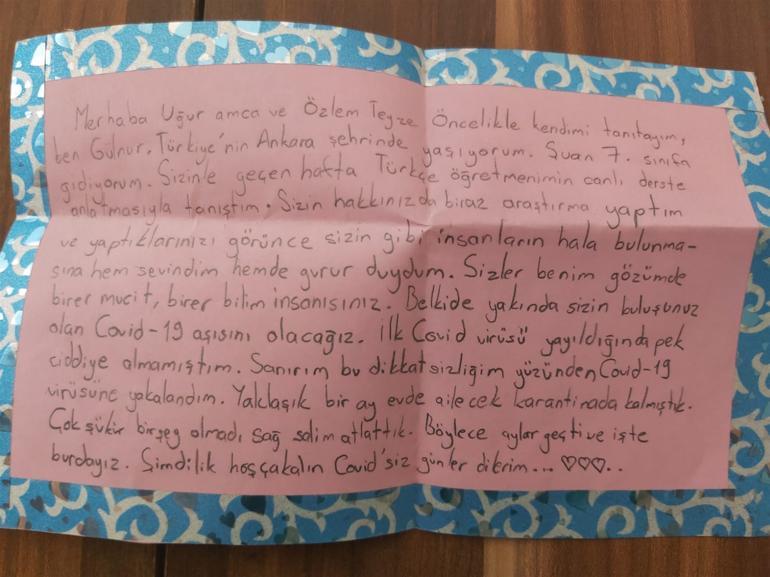 Merhaba Uğur amca ve Özlem Teyze Öncelikle kendimi tanıtayım,
ben Gülnur. Türkiye'nin Ankara şehrinde yaşıyorum. Şuan 7. sınıfa
gidiyorum. Sizinle geçen hafta Türkçe öğretmenimin canlı derste
anlatmasıyla tanıştım. Sizin hakkınızda biraz araştırma yaptım
ve yaptıklarınızı görünce sizin gibi insanların hala bulunma-
sına hem sevindim hemde gurur duydum. Sizler benim gözümde
birer mucit, birer bilim insanısınız. Belkide yakında sizin buluşunuz
olan Covid-19 aşısını olacağız. İlk Covid virüsü yayıldığında pek
ciddiye almamıştım. Sanırım bu dikkatsizliğim yüzünden Covid-19
virüsüne yakalandım. Yaklaşık bir ay evde ailecek karantinada kalmıştık.
Çok şükür birşey olmadı sağ salim atlattık. Böylece aylar geçti ve işte
burdayız. Şimdilik hoşçakalın Covid'siz günler dilerim... ♡♡♡..